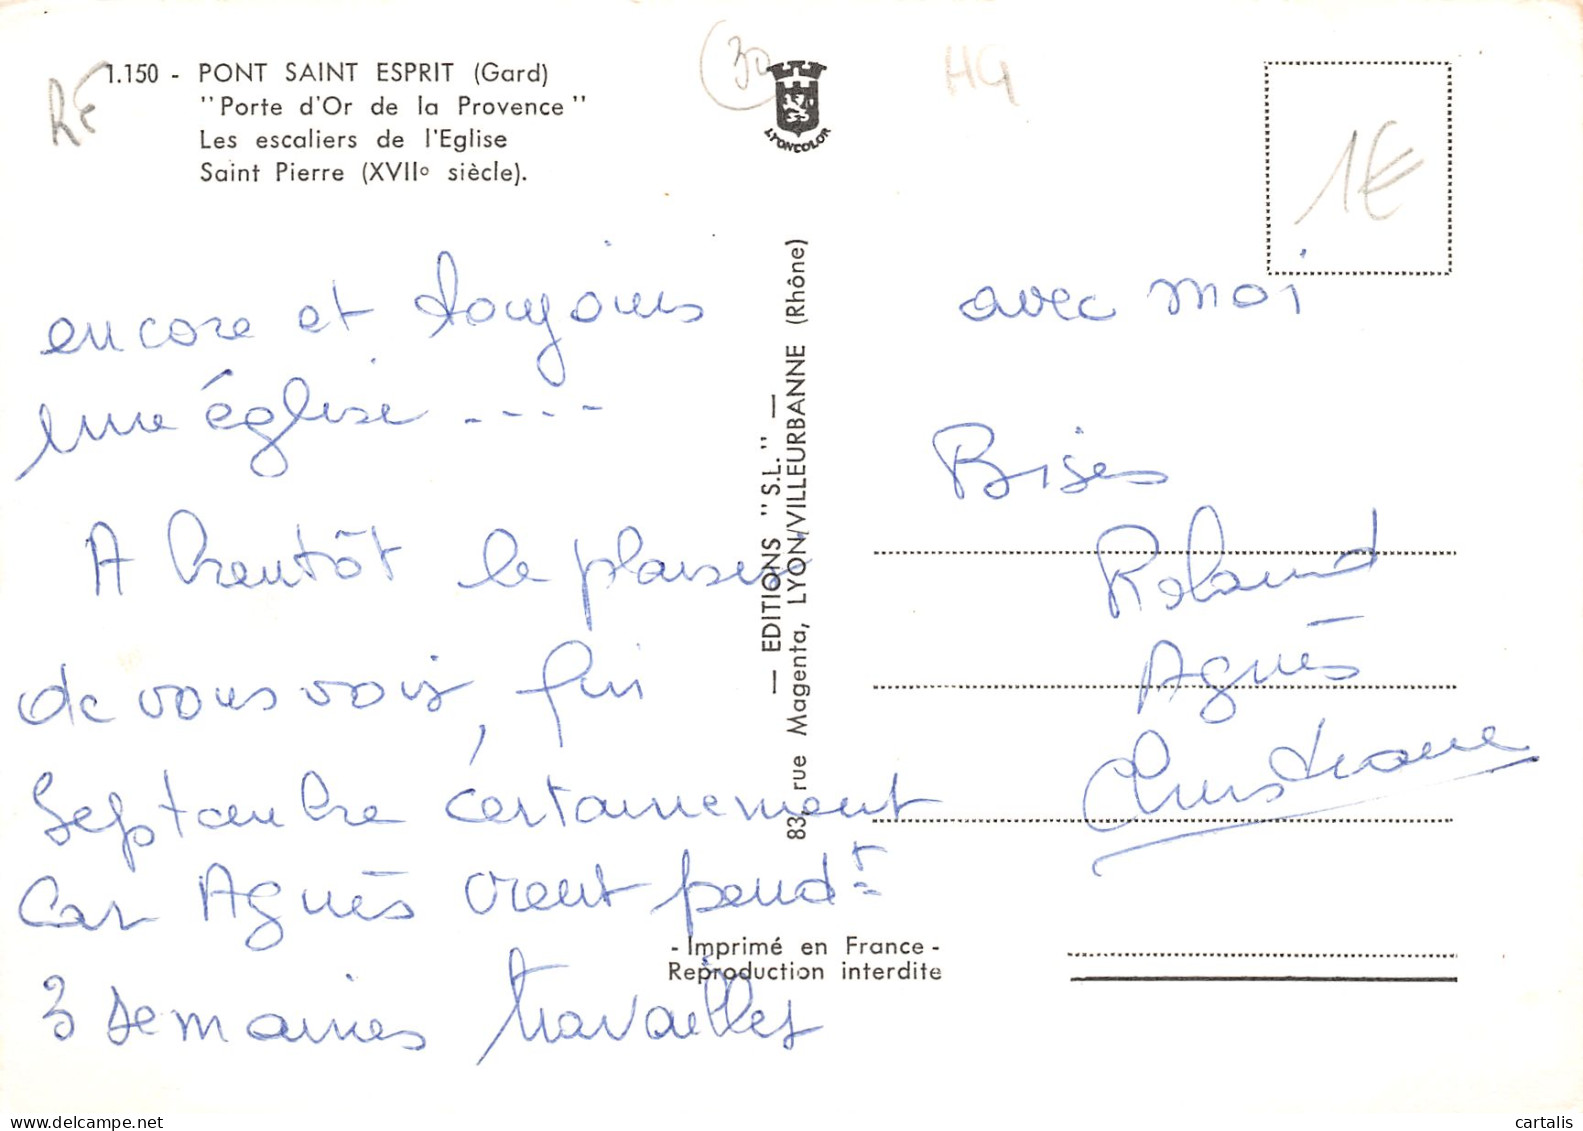 1.150 - PONT SAINT ESPRIT (Gard)
"Porte d'Or de la Provence"
Les escaliers de l'Eglise
Saint Pierre (XVIIe siècle).
RE
30
LYONCOLOR
HG
1€
encore et toujours
une église ----
A bientôt le plaisir
de vous voir, fin
Septembre certainement
Car Agnès vient pendt
3 semaines travailler
— EDITIONS "S.L." —
83, rue Magenta, LYON/VILLEURBANNE (Rhône)
avec moi
Bises
Roland
Agnès
Christiane
- Imprimé en France -
Reproduction interdite
www.delcampe.net
cartalis